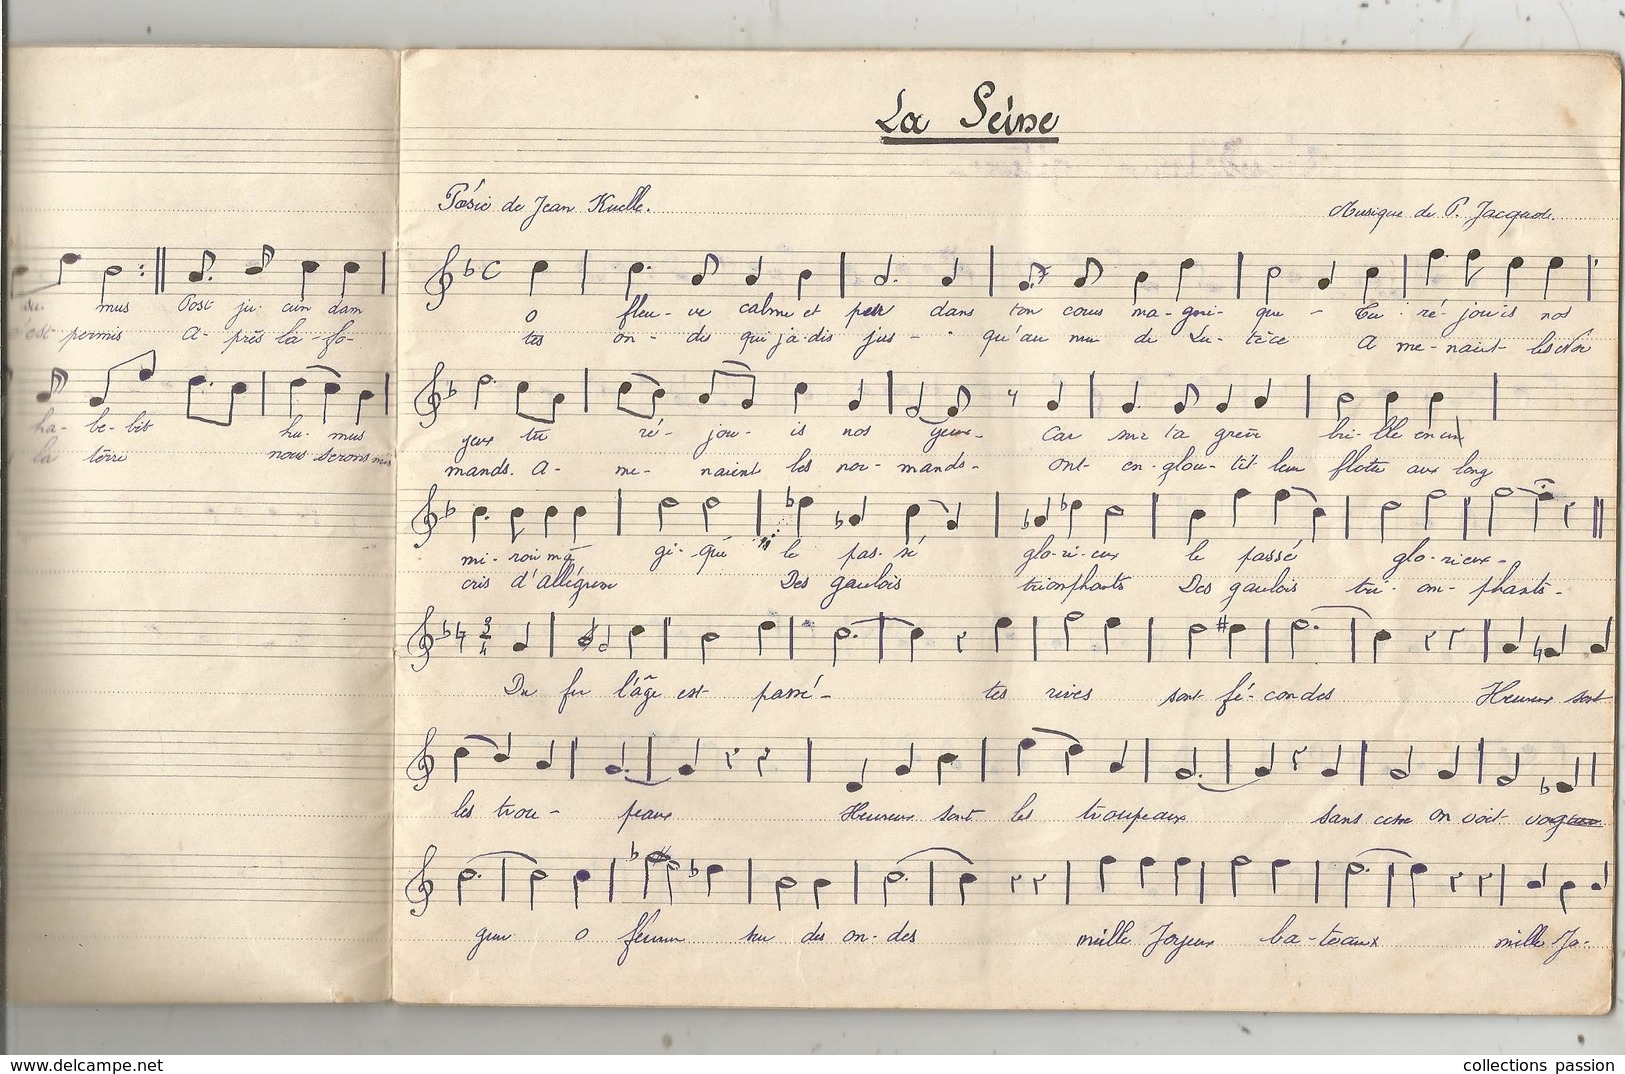 su- mus Post ju- cun dam
c'est permis A- près la - fo-
ha- be- bit hu- mus
la terre nous serons mis
La Seine
Poésie de Jean Kuelle.
Musique de P. Jacquot.
O fleu- ve calme et pur dans ton cours ma- gni- que - Tu ré- jouis nos
tes on- des qui ja- dis jus - qu'au mur de Lu- tèce A me- naient les Nor
yeux tu ré- jou- is nos yeux - Car sur ta grève bri- lle en un
mands. A- me- naient les nor- mands - ont en- glou- tit leur flotte aux long
mi- roir ma- gi- que le pas- sé glo- ri- eux le passé glo- rieux -
cris d'allégresse Des gaulois trionphants Des gaulois tri- om- phants -
Du fer l'âge est passé - tes rives sont fé- condes Heureux sont
les trou - peaux Heureux sont les troupeaux sans cesse on voit voguer
guer O fleuve sur des on- des mille Joyeux ba- teaux mille Jo-
collections passion